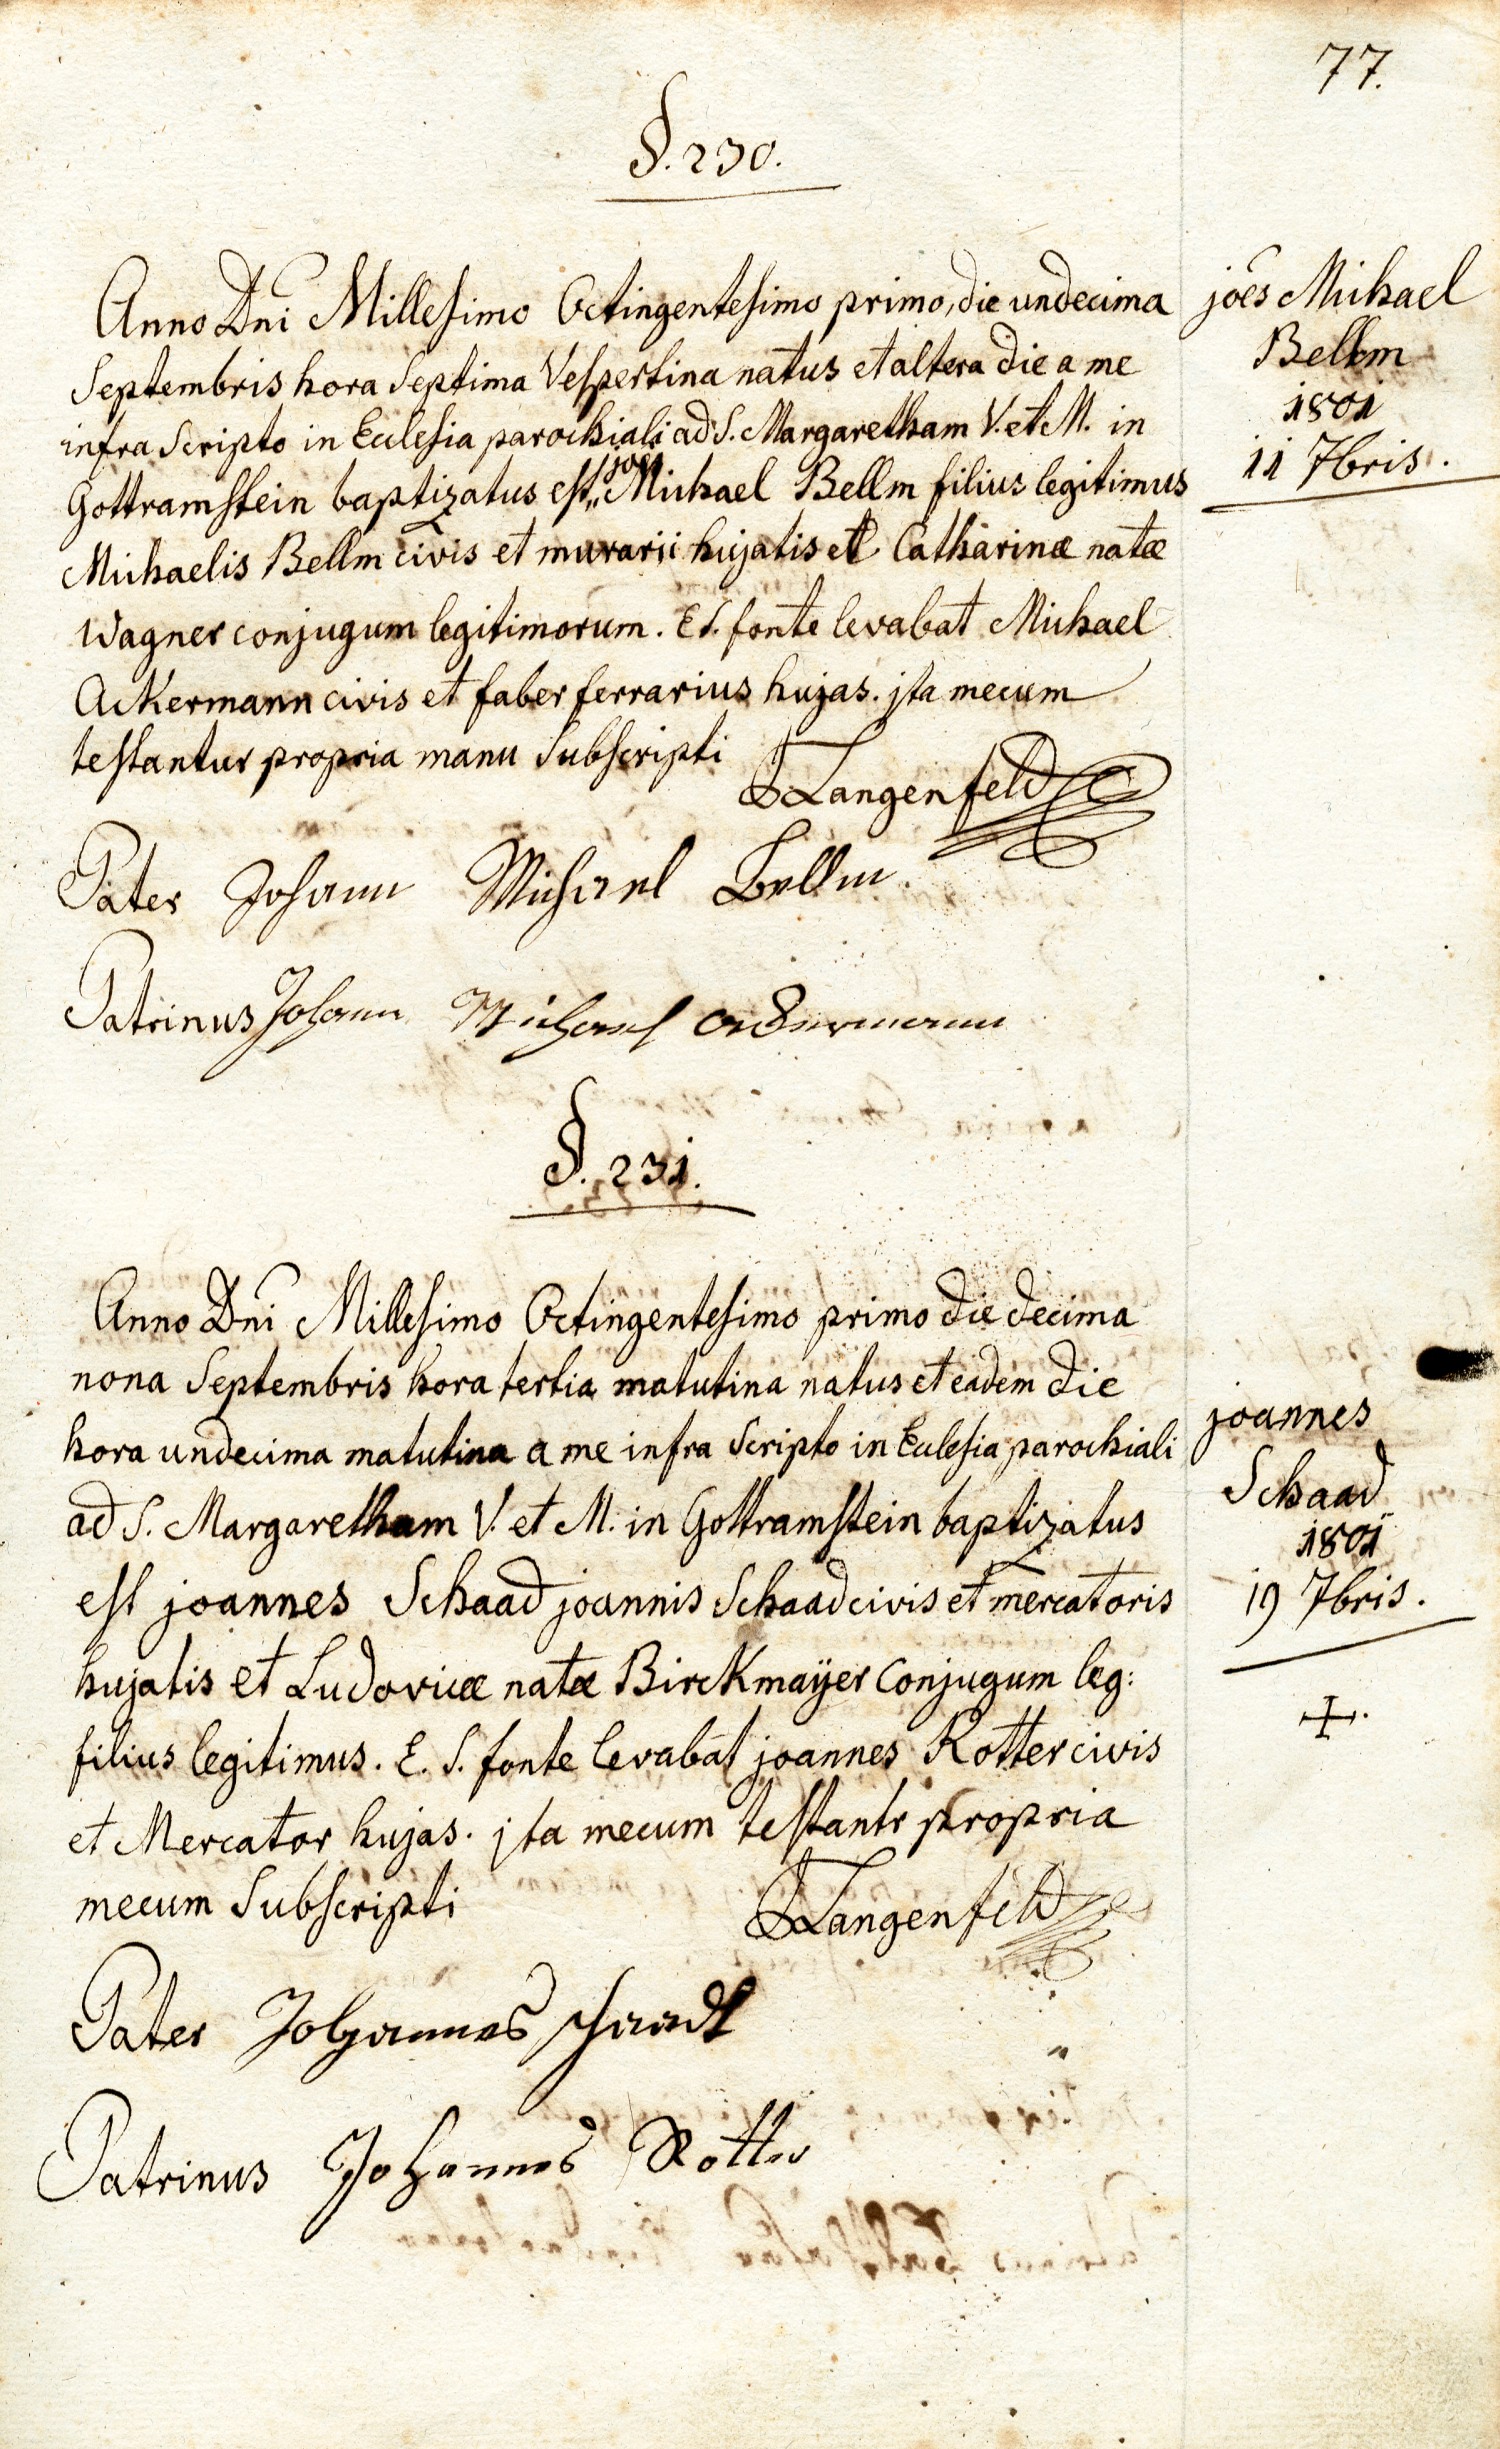 77.
§. 230.
Anno Dni Millesimo Octingentesimo primo, die undecima
Septembris hora Septima Vespertina natus et altera die a me
infra Scripto in Ecclesia parochiali ad S. Margaretham V. et M. in
Gottramstein baptizatus est joes Michael Bellm filius legitimus
Michaelis Bellm civis et murarii hujatis et Catharinæ natæ
Wagner conjugum legitimorum. E S. fonte levabat Michael
Ackermann civis et faber ferrarius hujas. jta mecum
testantur propria manu Subscripti
Langenfeld
Pater Johann Michael Bellm.
Patrinus Johann Michael Ackermann
joês Michael
Bellm
1801
11 7bris.
§. 231.
Anno Dni Millesimo Octingentesimo primo die decima
nona Septembris hora tertia matutina natus et eadem die
hora undecima matutina a me infra Scripto in Ecclesia parochiali
ad S. Margaretham V. et M. in Gottramstein baptizatus
est joannes Schaad joannis Schaad civis et mercatoris
hujatis et Ludovicæ natæ Birckmaÿer conjugum leg:
filius legitimus. E. S. fonte levabat joannes Rotter civis
et Mercator hujas. jta mecum testantr propria
mecum Subscripti
Langenfeld
Pater Johannes Schaadt
Patrinus Johannes Rotter
joannes
Schaad
1801
19 7bris.